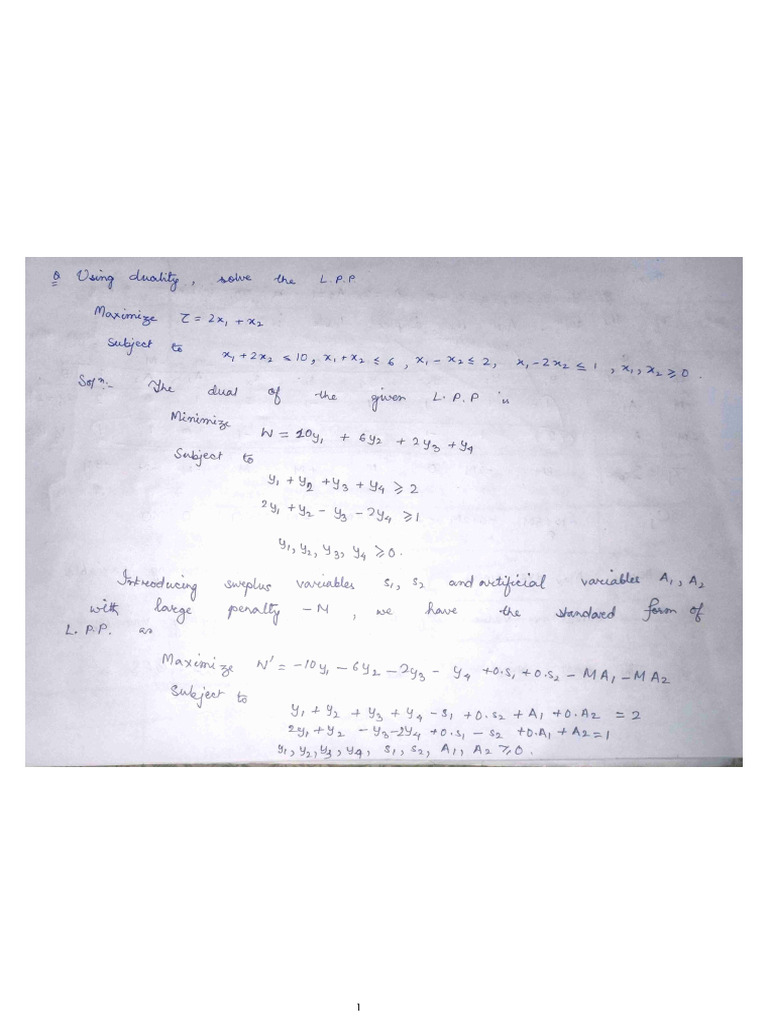 Q Using duality, solve the L.P.P
Maximize Z = 2x₁ + x₂
Subject to
x₁ + 2x₂ ≤ 10, x₁ + x₂ ≤ 6, x₁ - x₂ ≤ 2, x₁ - 2x₂ ≤ 1, x₁, x₂ ≥ 0.
Solⁿ:- The dual of the given L.P.P is
Minimize W = 10y₁ + 6y₂ + 2y₃ + y₄
Subject to
y₁ + y₂ + y₃ + y₄ ≥ 2
2y₁ + y₂ - y₃ - 2y₄ ≥ 1
y₁, y₂, y₃, y₄ ≥ 0.
Introducing surplus variables s₁, s₂ and artificial variables A₁, A₂
with large penalty -M, we have the standard form of
L.P.P. as
Maximize W' = -10y₁ - 6y₂ - 2y₃ - y₄ + 0.s₁ + 0.s₂ - MA₁ - MA₂
Subject to
y₁ + y₂ + y₃ + y₄ - s₁ + 0.s₂ + A₁ + 0.A₂ = 2
2y₁ + y₂ - y₃ - 2y₄ + 0.s₁ - s₂ + 0.A₁ + A₂ = 1
y₁, y₂, y₃, y₄, s₁, s₂, A₁, A₂ ≥ 0.
1